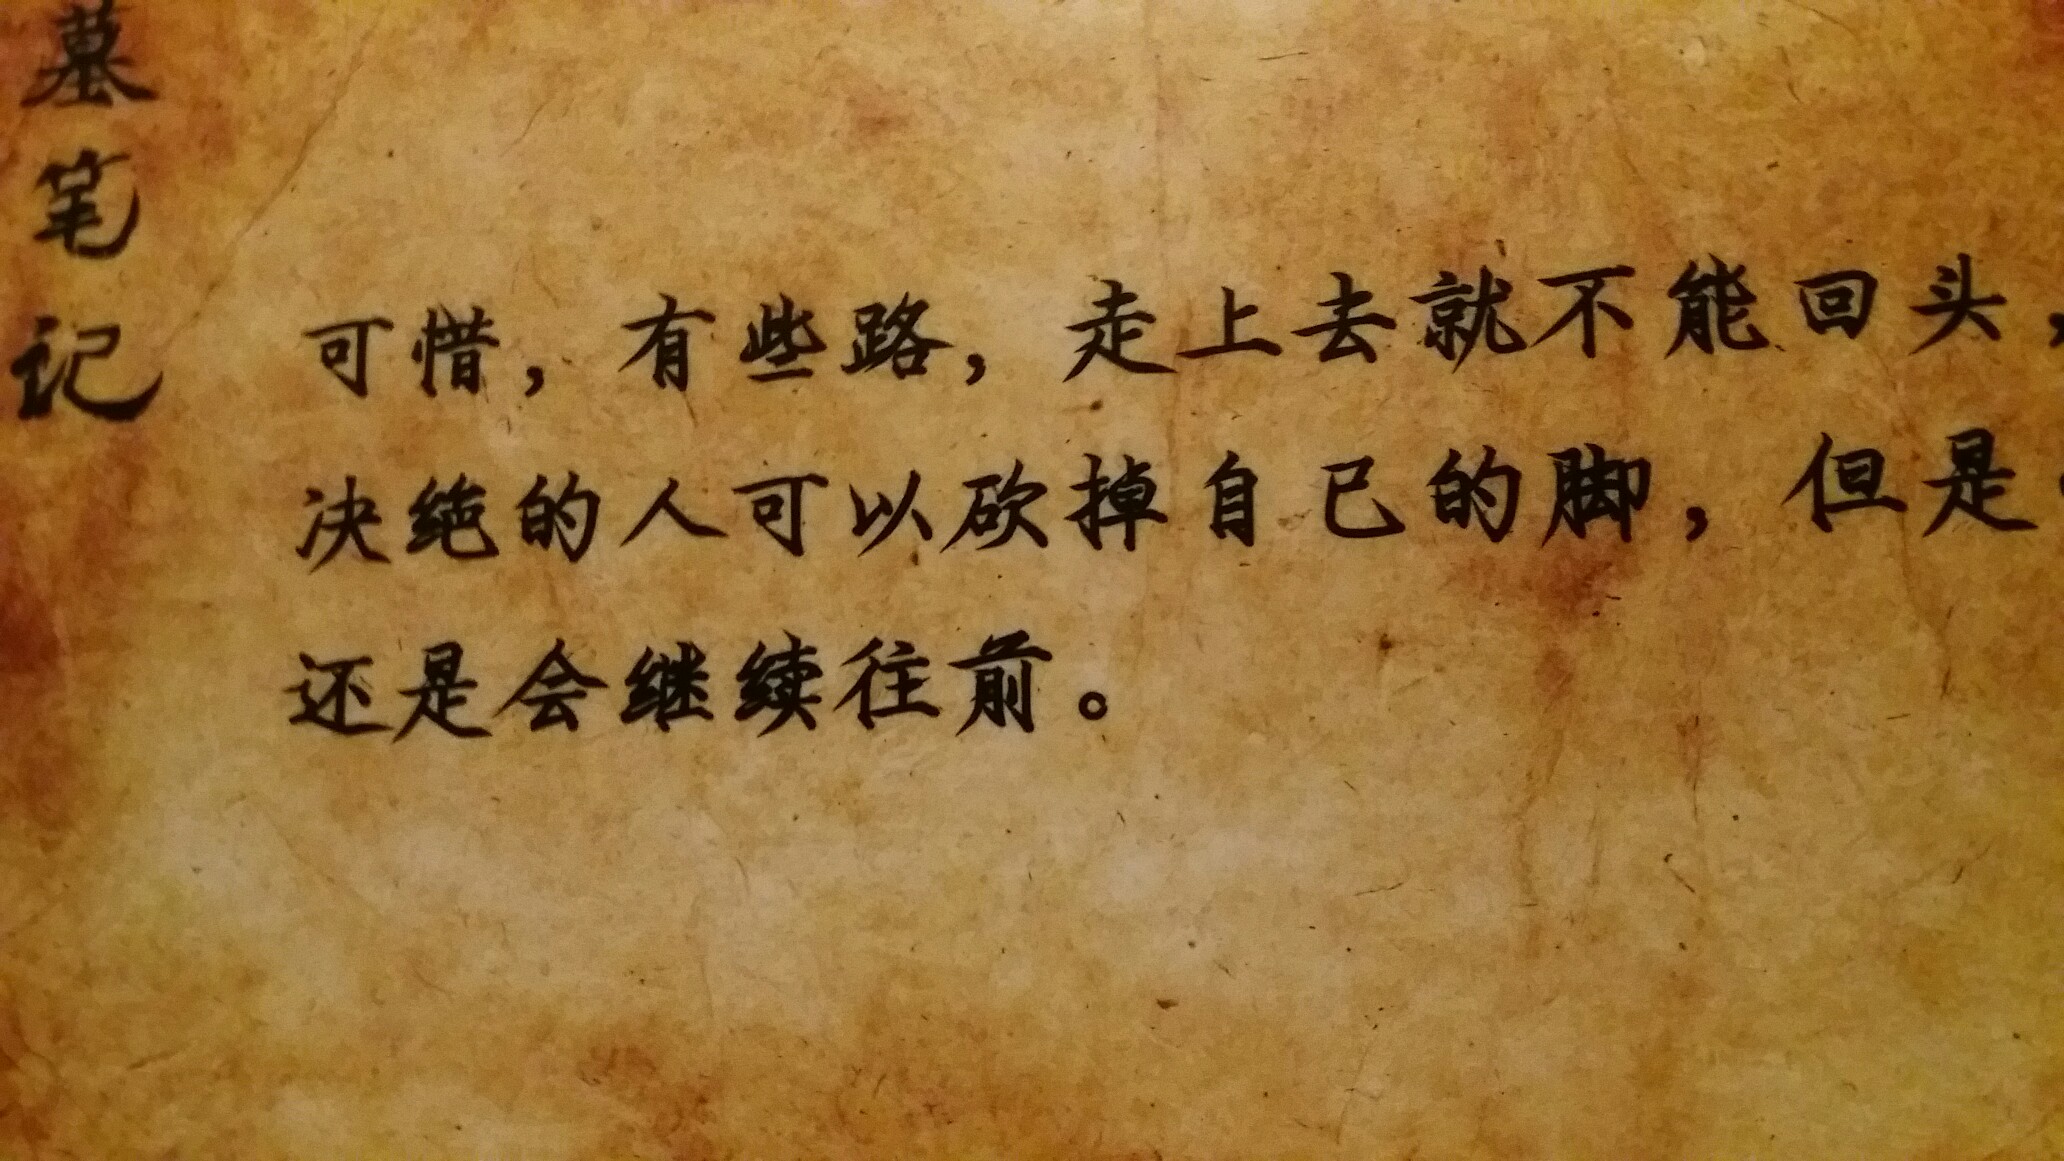 墓笔记
可惜，有些路，走上去就不能回头，
决绝的人可以砍掉自己的脚，但是
还是会继续往前。